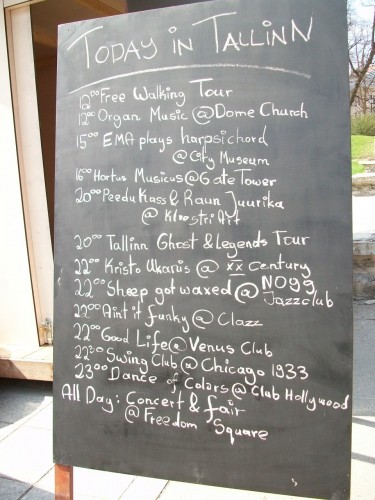 TODAY IN TALLINN
12⁰⁰ Free Walking Tour
12⁰⁰ Organ Music @ Dome Church
15⁰⁰ EMA plays harpsichord
@ City Museum
16⁰⁰ Hortus Musicus @ Gate Tower
20⁰⁰ Peedu Kass & Raun Juurika
@ Kloostri Ait
20⁰⁰ Tallinn Ghost & Legends Tour
22⁰⁰ Kristo Ukanis @ XX Century
22⁰⁰ Sheep got waxed @ NO99
Jazzclub
22⁰⁰ Ain't it funky @ Clazz
22⁰⁰ Good Life @ Venus Club
22⁰⁰ Swing Club @ Chicago 1933
23⁰⁰ Dance of Colors @ Club Hollywood
All Day: Concert & fair
@ Freedom Square